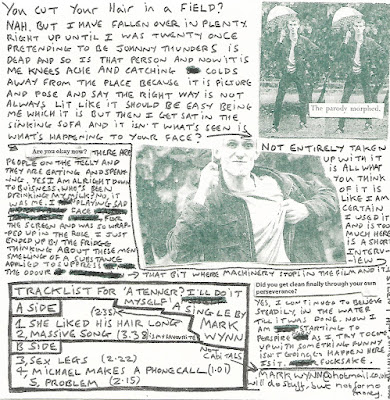 YOU CUT YOUR HAIR IN A FIELD?
NAH, BUT I HAVE FALLEN OVER IN PLENTY
RIGHT UP UNTIL I WAS TWENTY ONCE
PRETENDING TO BE JOHNNY THUNDERS IS
DEAD AND SO IS THAT PERSON AND NOW IT IS
ME KNEES ACHE AND CATCHING COLDS
AWAY FROM THE PLACE BECAUSE IT IS PICTURE
AND POSE AND SAY THE RIGHT WAY IS NOT
ALWAYS LIT LIKE IT SHOULD BE EASY BEING
ME WHICH IT IS BUT THEN I GET SAT IN THE
SINKING SOFA AND IT ISN'T WHAT'S SEEN IS
WHAT'S HAPPENING TO YOUR FACE?
The parody morphed.
Are you okay now? THERE ARE
PEOPLE ON THE TELLY AND
THEY ARE EATING AND SPEAK-
ING. YES I AM ALRIGHT DOWN
TO BUISNESS. WHO'S BEEN
DRINKING MY MILK? NO, IT
WAS ME. I PLAYING SAD
FACE FOR
THE SCREEN AND WAS SO WRAP-
PED UP IN THE ROLE I JUST
ENDED UP BY THE FRIDGE
THINKING ABOUT THESE MEN
SMELLING OF A SUBSTANCE
APPLIED TO SUPPRESS
THE ODOUR
NOT ENTIRELY TAKEN
UP WITH IT
IS ALL WHAT
YOU THINK
OF IT IS
LIKE I AM
CERTAIN
I USED IT
AND IS TOO
MUCH HERE
IS A SHORT
INTERVIEW
THAT BIT WHERE MACHINERY STOPS IN THE FILM AND ITS
TRACKLIST FOR 'A TENNER? I'LL DO IT
MYSELF' A SINGLE BY
MARK
WYNN
A SIDE
(2:35)
1. SHE LIKED HIS HAIR LONG
2. MASSIVE SONG (3.38)
B SIDE
3. SEX LEGS (2:22)
4. MICHAEL MAKES A PHONECALL (1:01)
5. PROBLEM (2:15)
Did you get clean finally through your own
perseverance?
YES, I CONTINUED TO BELIEVE
STEADILY IN THE WATER
TILL IT WAS DONE. NOW I
AM STARTING TO
PERSPIRE AS I TRY TO CONJURE
UP, IT'S SOMETHING FUNNY
ISN'T GOING TO HAPPEN HERE
IS IT. FUCKSAKE.
MARKWYNN@HOTMAIL.CO.UK
will do stuff, but not for no
money